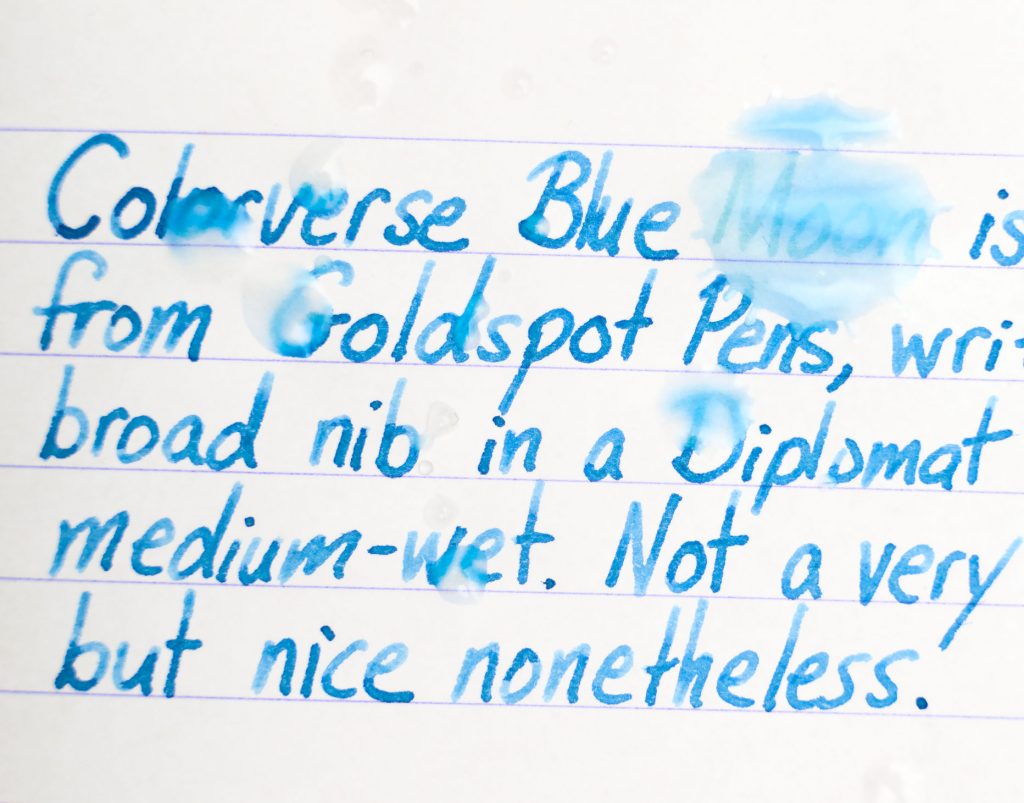 Colorverse Blue Moon is
from Goldspot Pens, writ
broad nib in a Diplomat
medium-wet. Not a very
but nice nonetheless.